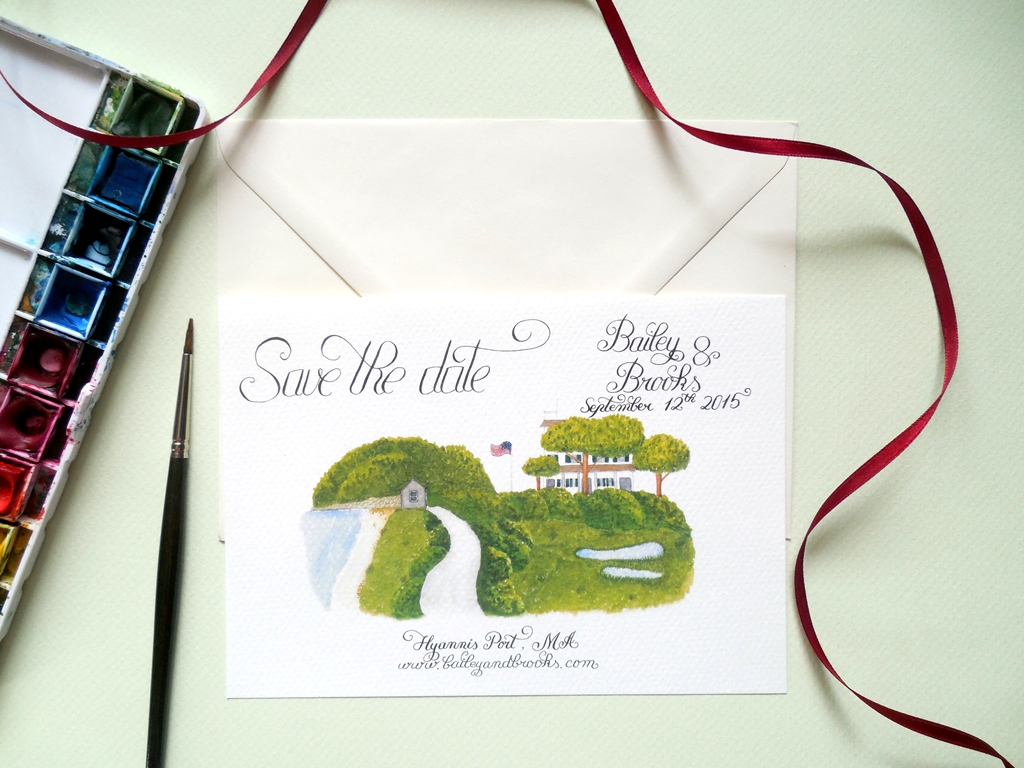 Save the date
Bailey &
Brooks
September 12th 2015
Hyannis Port, MA
www.baileyandbrooks.com